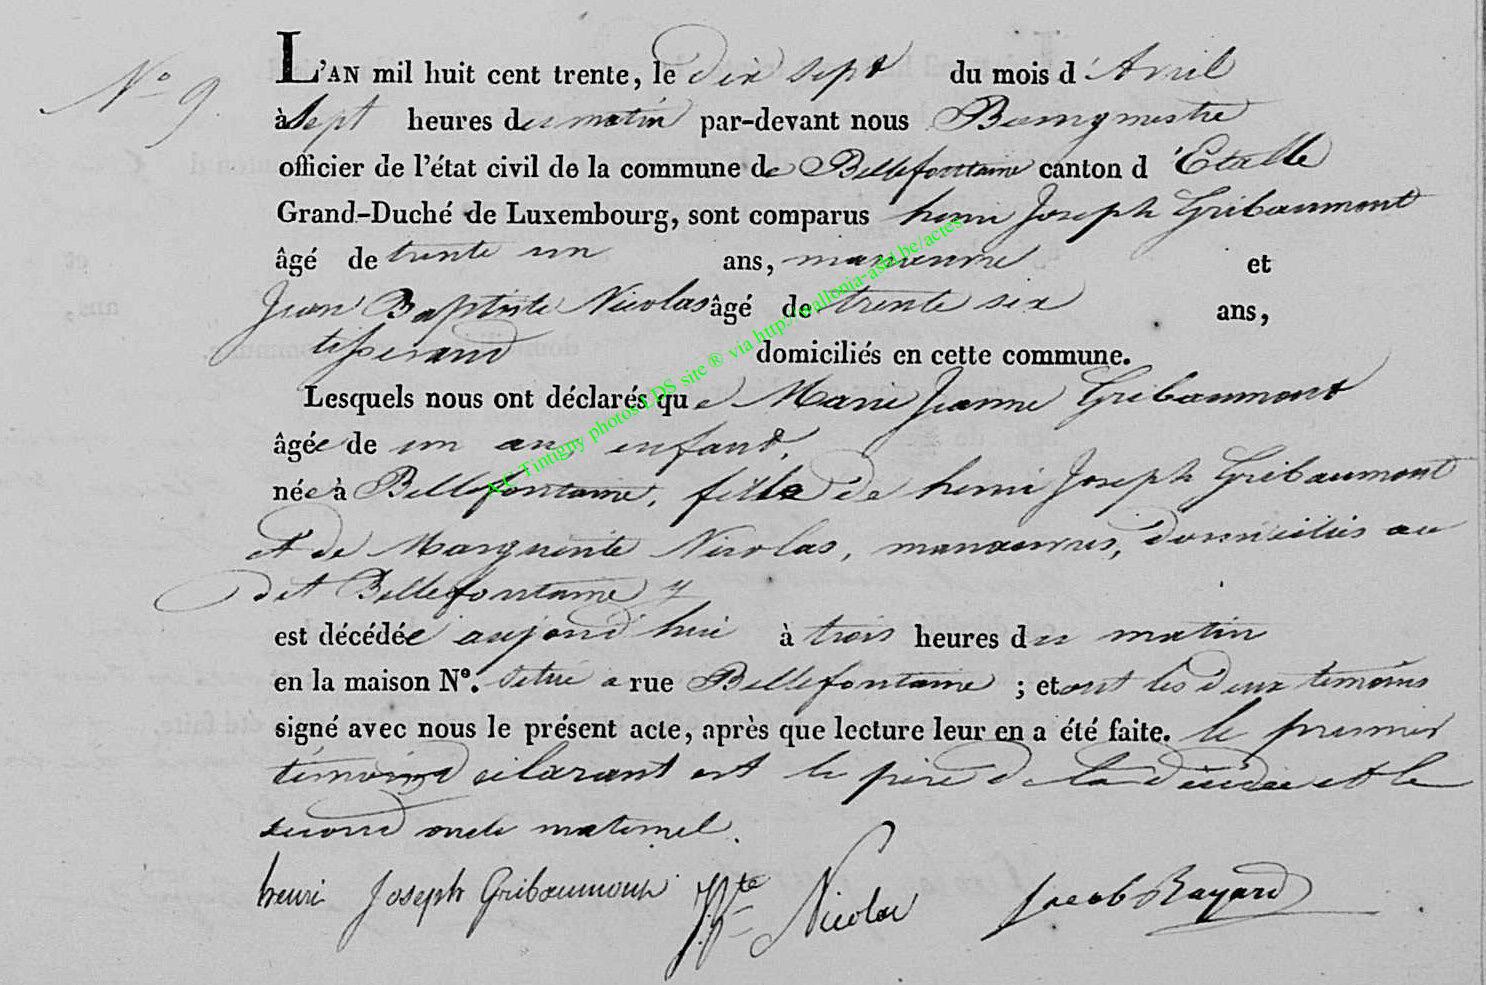 N° 9.
L'AN mil huit cent trente, le dix sept du mois d'Avril
à Sept heures du matin par-devant nous Bourgmestre
officier de l'état civil de la commune de Bellefontaine canton d'Etalle
Grand-Duché de Luxembourg, sont comparus henri Joseph Gribaumont
âgé de trente un ans, manœuvre et
Jean Baptiste Nicolas âgé de trente six ans,
tisserand domiciliés en cette commune.
Lesquels nous ont déclarés que Marie Jeanne Gribaumont
âgée de un an, enfant,
née à Bellefontaine, fille de henri Joseph Gribaumont
et de Marguerite Nicolas, manœuvres, domiciliés au
dit Bellefontaine
est décédée aujourd'hui à trois heures du matin
en la maison N°. située a rue Bellefontaine ; et ont les deux témoins
signé avec nous le présent acte, après que lecture leur en a été faite. le premier
témoin déclarant est le père de la décédée et le
second oncle maternel.
henri Joseph Gribaumont JBte Nicolas Jacob Bayard
AC Tintigny photos LDS site ® via http://wallonia-asbl.be/actes